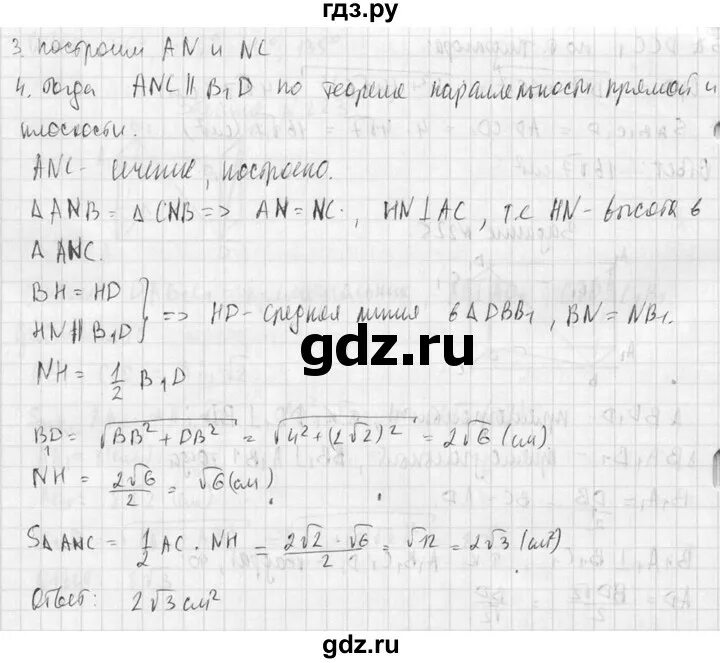 гдз.ру
3. построим AN и NC
4. тогда ANC ∥ B₁D по теореме параллельности прямой и
плоскости.
ANC - сечение, построено.
Δ ANB = Δ CNB => AN = NC., HN ⊥ AC, т.е HN - высота в
Δ ANC.
BH = HD
HN ∥ B₁D } => HD - средняя линия в Δ DBB₁, BN = NB₁.
NH = 1/2 B₁D
gdz.ru
B₁D = √(BB² + DB²) = √(4² + (2√2)²) = 2√6 (см)
NH = 2√6/2 = √6 (см)
S Δ ANC = 1/2 AC · NH = 2√2 · √6/2 = √12 = 2√3 (см²)
Ответ: 2√3 см²
gdz.ru